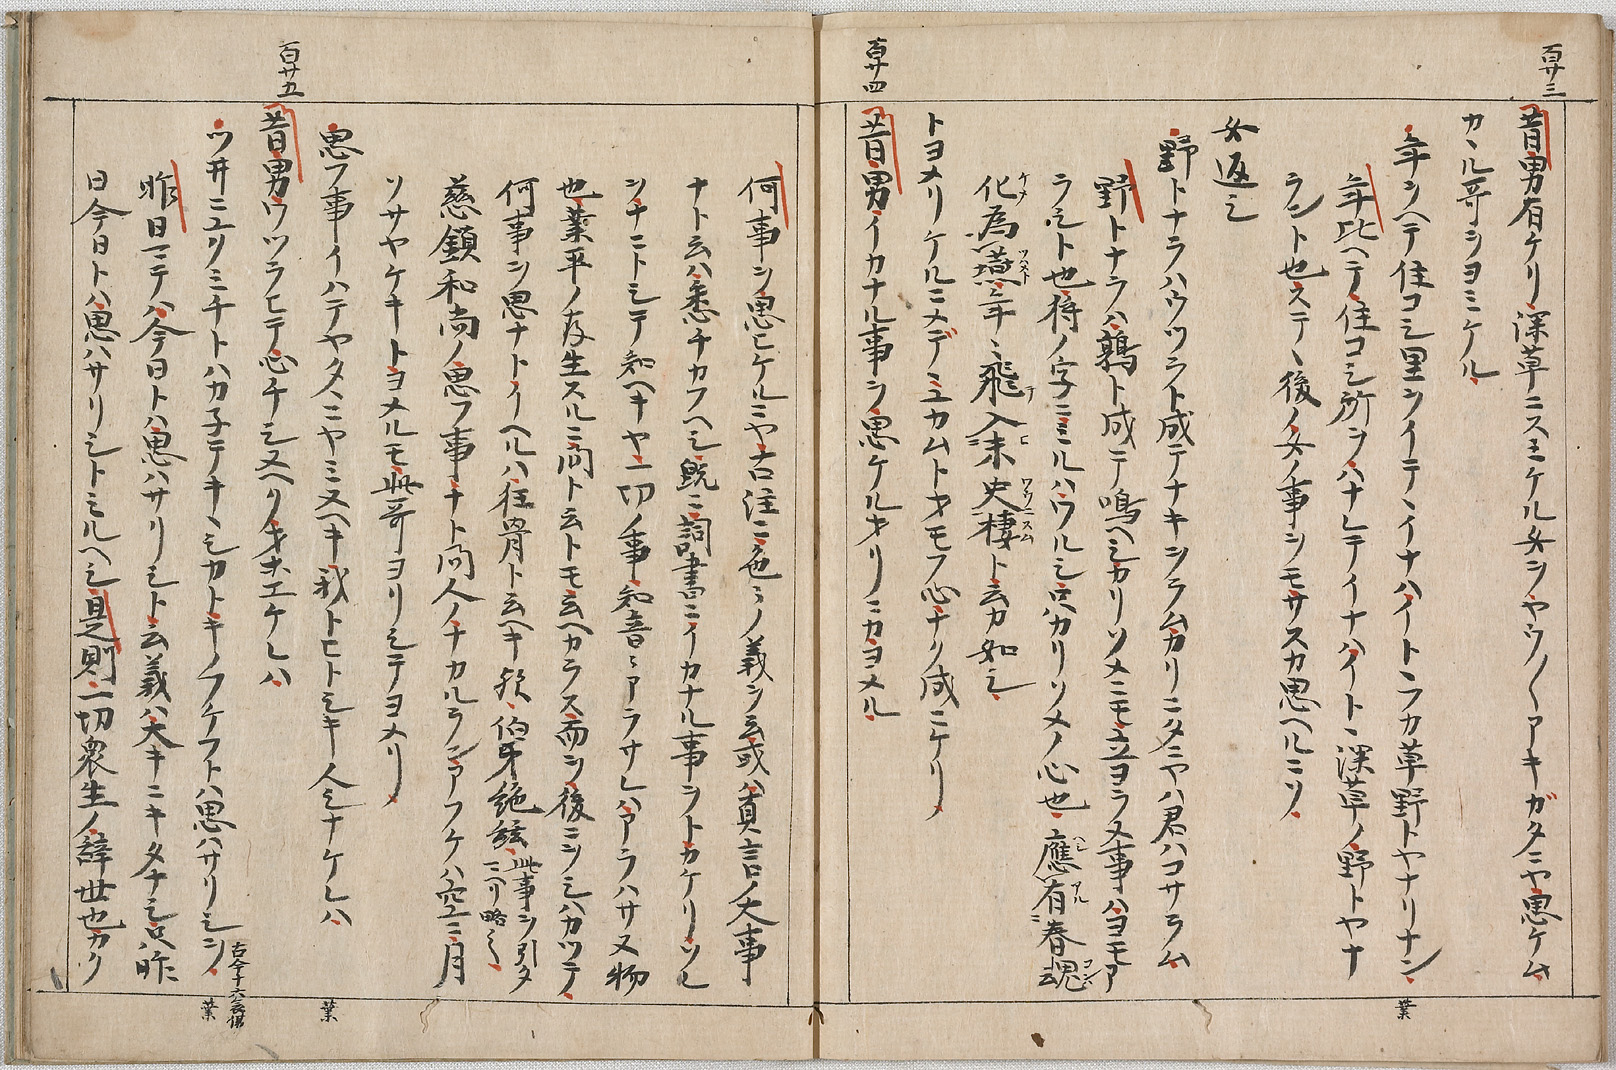 百廿三
昔男有ケリ深草ニスミケル女ヲヤウ〱アキガタニヤ思ケム
カヽル哥ヲヨミケル
年ヲヘテ住コシ里ヲイテヽイナハイトヽフカ草野トヤナリナン
葉
年比ヘテ住コシ所ヲハナレテイナハイトヽ深草ノ野トヤナ
ラント也ステヽ後ノ女ノ事ヲモサスカ思ヘルニソ
女返シ
野トナラハウツラト成テナキヲラムカリニタニヤハ君ハコサラム
野トナラハ鶉ト成テ鳴ヘシカリソメニモ立ヨラヌ事ハヨモア
ラシト也狩ノ字ニミルハワルシ只カリソメノ心也應有春魂
化為燕年ヽ飛入未史棲ト云カ如シ
トヨメリケルニメデヽユカムトオモフ心ナリ成ニケリ
百廿四
昔男イカナル事ヲ思ケルオリニカヨメル
何事ヲ思ヒケルニヤ古注ニ色ヽノ義ヲ云或ハ真言ノ大事
ナト云ハ悉チカフヘシ既ニ詞書ニイカナル事ヲトカケリソレ
ヲナニトシテ知ヘキヤ一切ノ事知音ヽアラサレハアラハサヌ物
也業平ノ存生スルニ問ト云トモ云ヘカラス而ヲ後ニヲシハカツテ
何事ヲ思ナトイヘルハ狂骨ト云ヘキ歟伯牙絶絃此事ヲ引タ
ニヘリ略之
慈鎮和尚ノ思フ事ナト問人ノナカルランアフケハ空ニ月
ソサヤケキトヨメルモ此哥ヨリシテヨメリ
思フ事イハテヤタヽニヤミヌヘキ我トヒトシキ人シナケレハ
葉
百廿五
昔男ワツラヒテ心チシヌヘクオホエケレハ
ツ井ニユクミチトハカ子テキヽシカトキノフケフトハ思ハサリシヲ
古今十六哀傷
葉
昨日マテハ今日トハ思ハサリシト云義ハ大キニキタナシ只昨
日今日トハ思ハサリシトミルヘシ是則一切衆生ノ辞世也カク